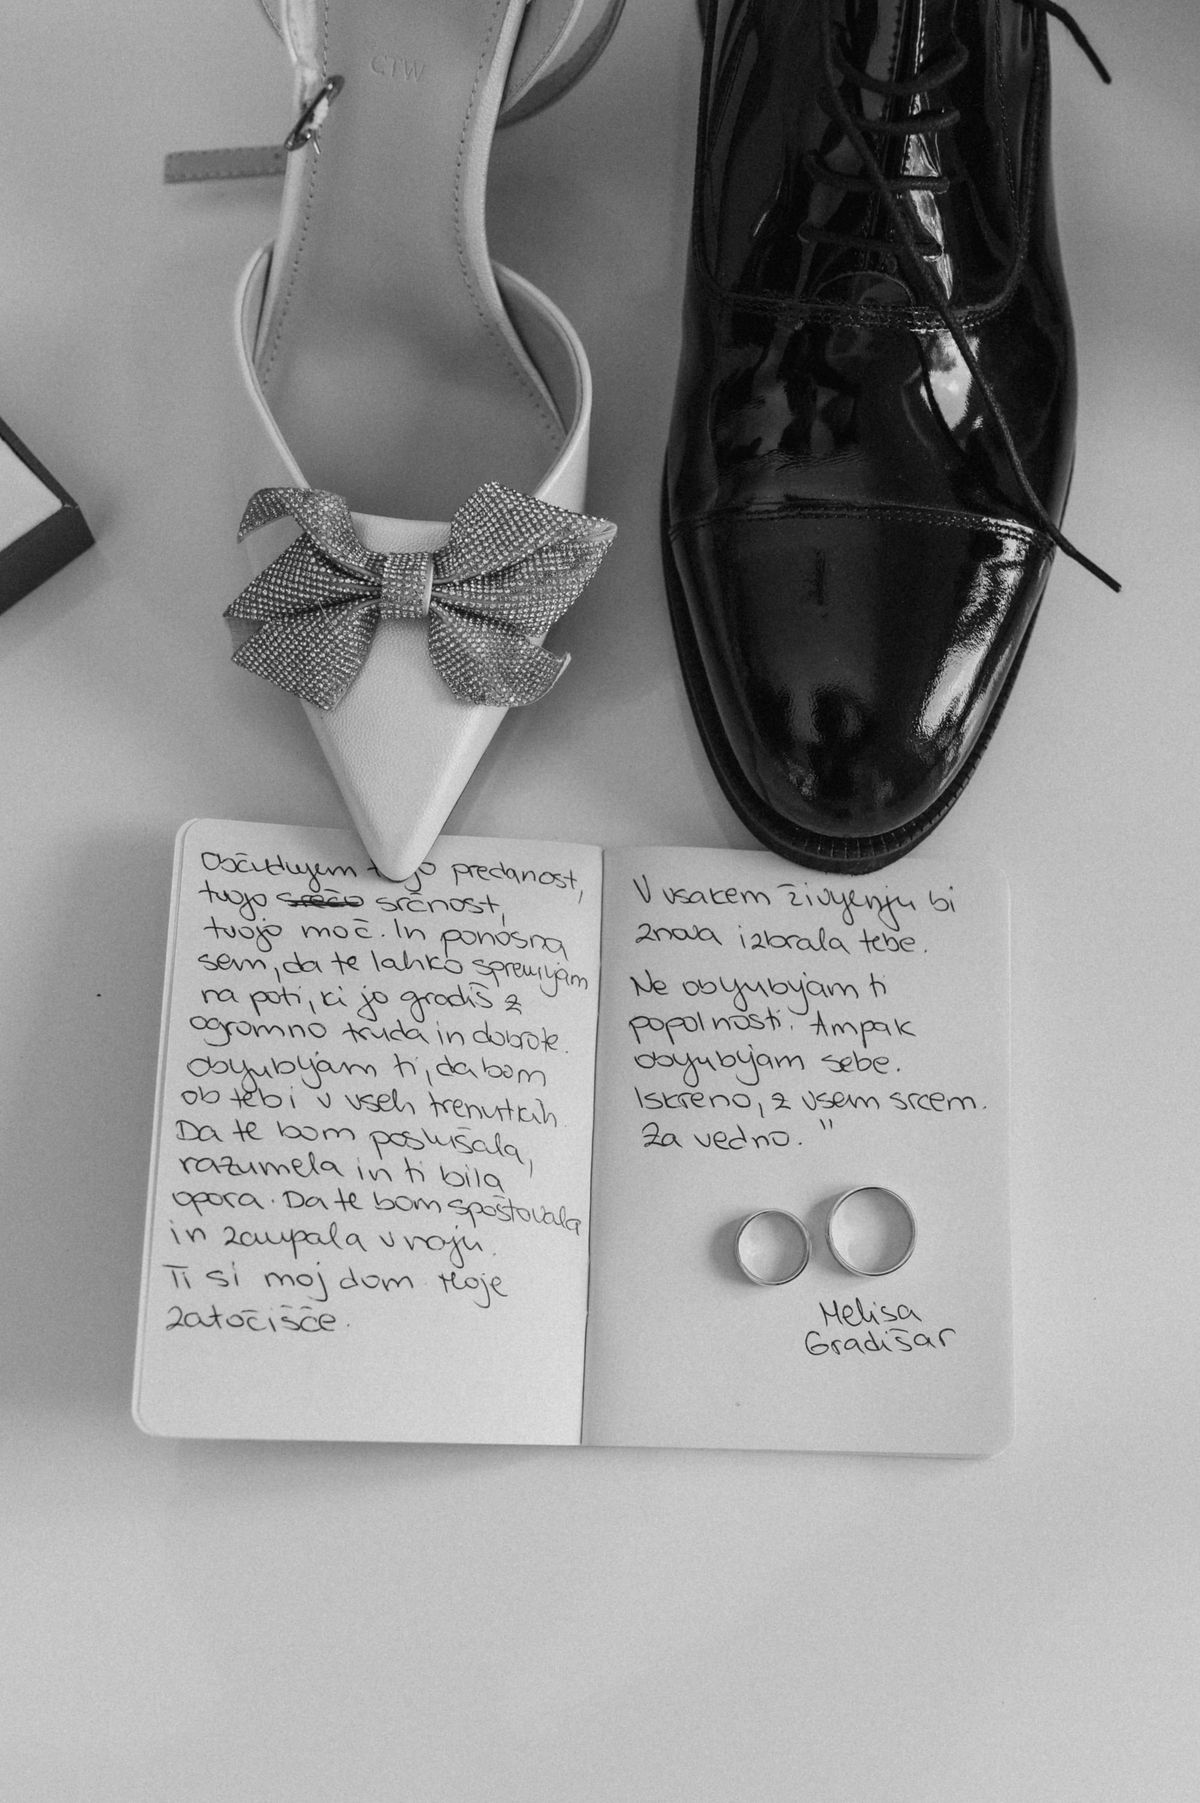 CTW
Občudujem predanost,
tvojo srečo srčnost,
tvojo moč. In ponosna
sem, da te lahko spremljam
na poti, ki jo gradiš z
ogromno truda in dobrote.
Obljubljam ti, da bom
ob tebi v vseh trenutkih.
Da te bom poslušala,
razumela in ti bila
opora. Da te bom spoštovala
in zaupala v naju.
Ti si moj dom. Moje
zatočišče.
V vsakem življenju bi
znova izbrala tebe.
Ne obljubljam ti
popolnosti. Ampak
obljubljam sebe.
Iskreno, z vsem srcem.
Za vedno."
Melisa
Gradišar